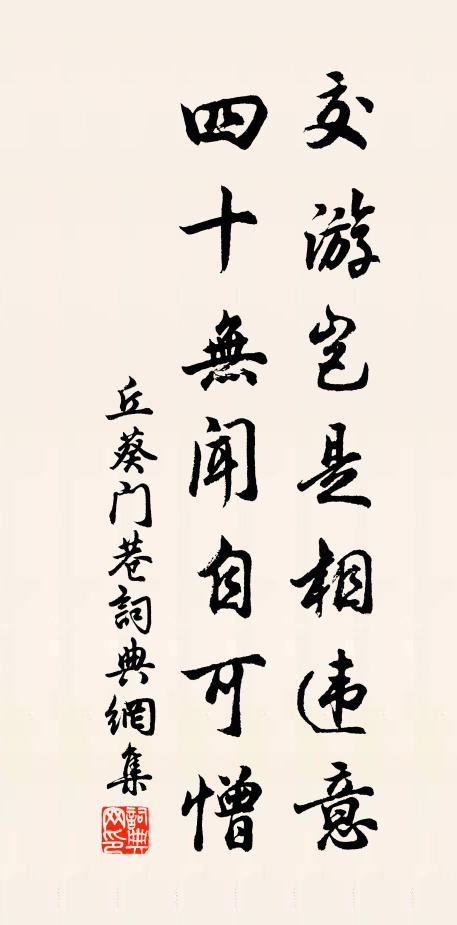 交游岂是相违意
四十無闻自可憎
丘葵门巷詞典網集
詞典网印